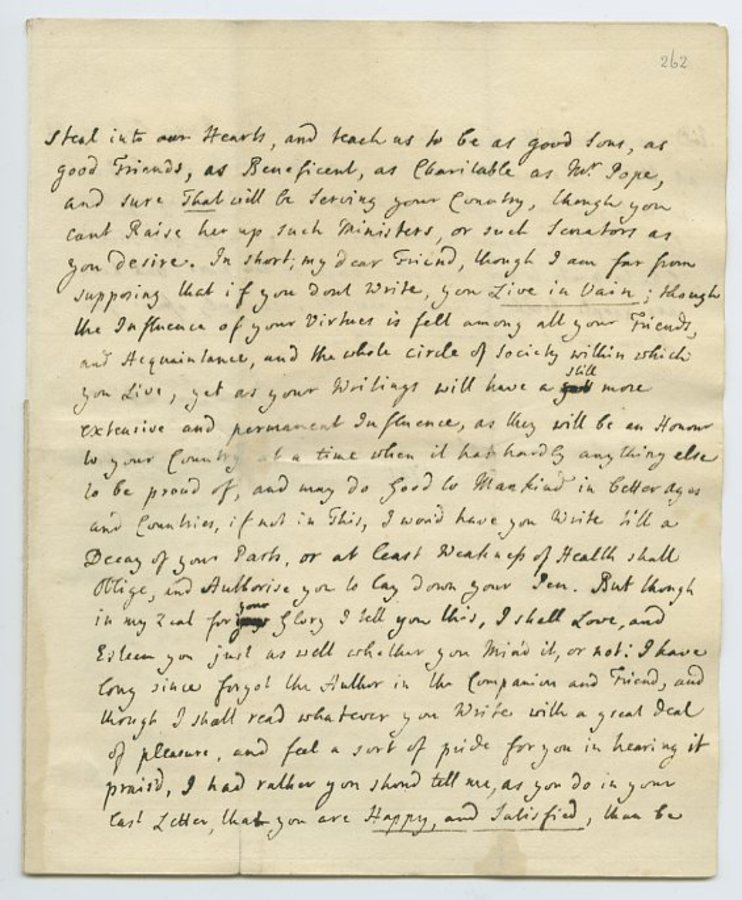 262
steal into our Hearts, and teach us to be as good Sons, as
good Friends, as Beneficent, as Charitable as Mr. Pope,
and sure That will be Serving your Country, though you
cant Raise her up such Ministers, or such Senators as
you desire. In short, my dear Friend, though I am far from
supposing that if you dont Write, you Live in Vain; though
the Influence of your Virtues is felt among all your Friends,
and Acquaintance, and the whole circle of Society within which
you Live, yet as your Writings will have a still more
extensive and permanent Influence, as they will be an Honour
to your Country at a time when it has hardly any thing else
to be proud of, and may do Good to Mankind in better ages
and Countries, if not in This, I wou'd have you Write till a
Decay of your Parts, or at least Weakness of Health shall
Oblige, and Authorise you to lay down your Pen. But though
in my Zeal for your Glory I tell you this, I shall Love, and
Esteem you just as well whether you Mind it, or not: I have
long since forgot the Author in the Companion and Friend, and
though I shall read whatever you Write with a great deal
of pleasure, and feel a sort of pride for you in hearing it
prais'd, I had rather you shoud tell me, as you do in your
last Letter, that you are Happy, and Satisfied, than be